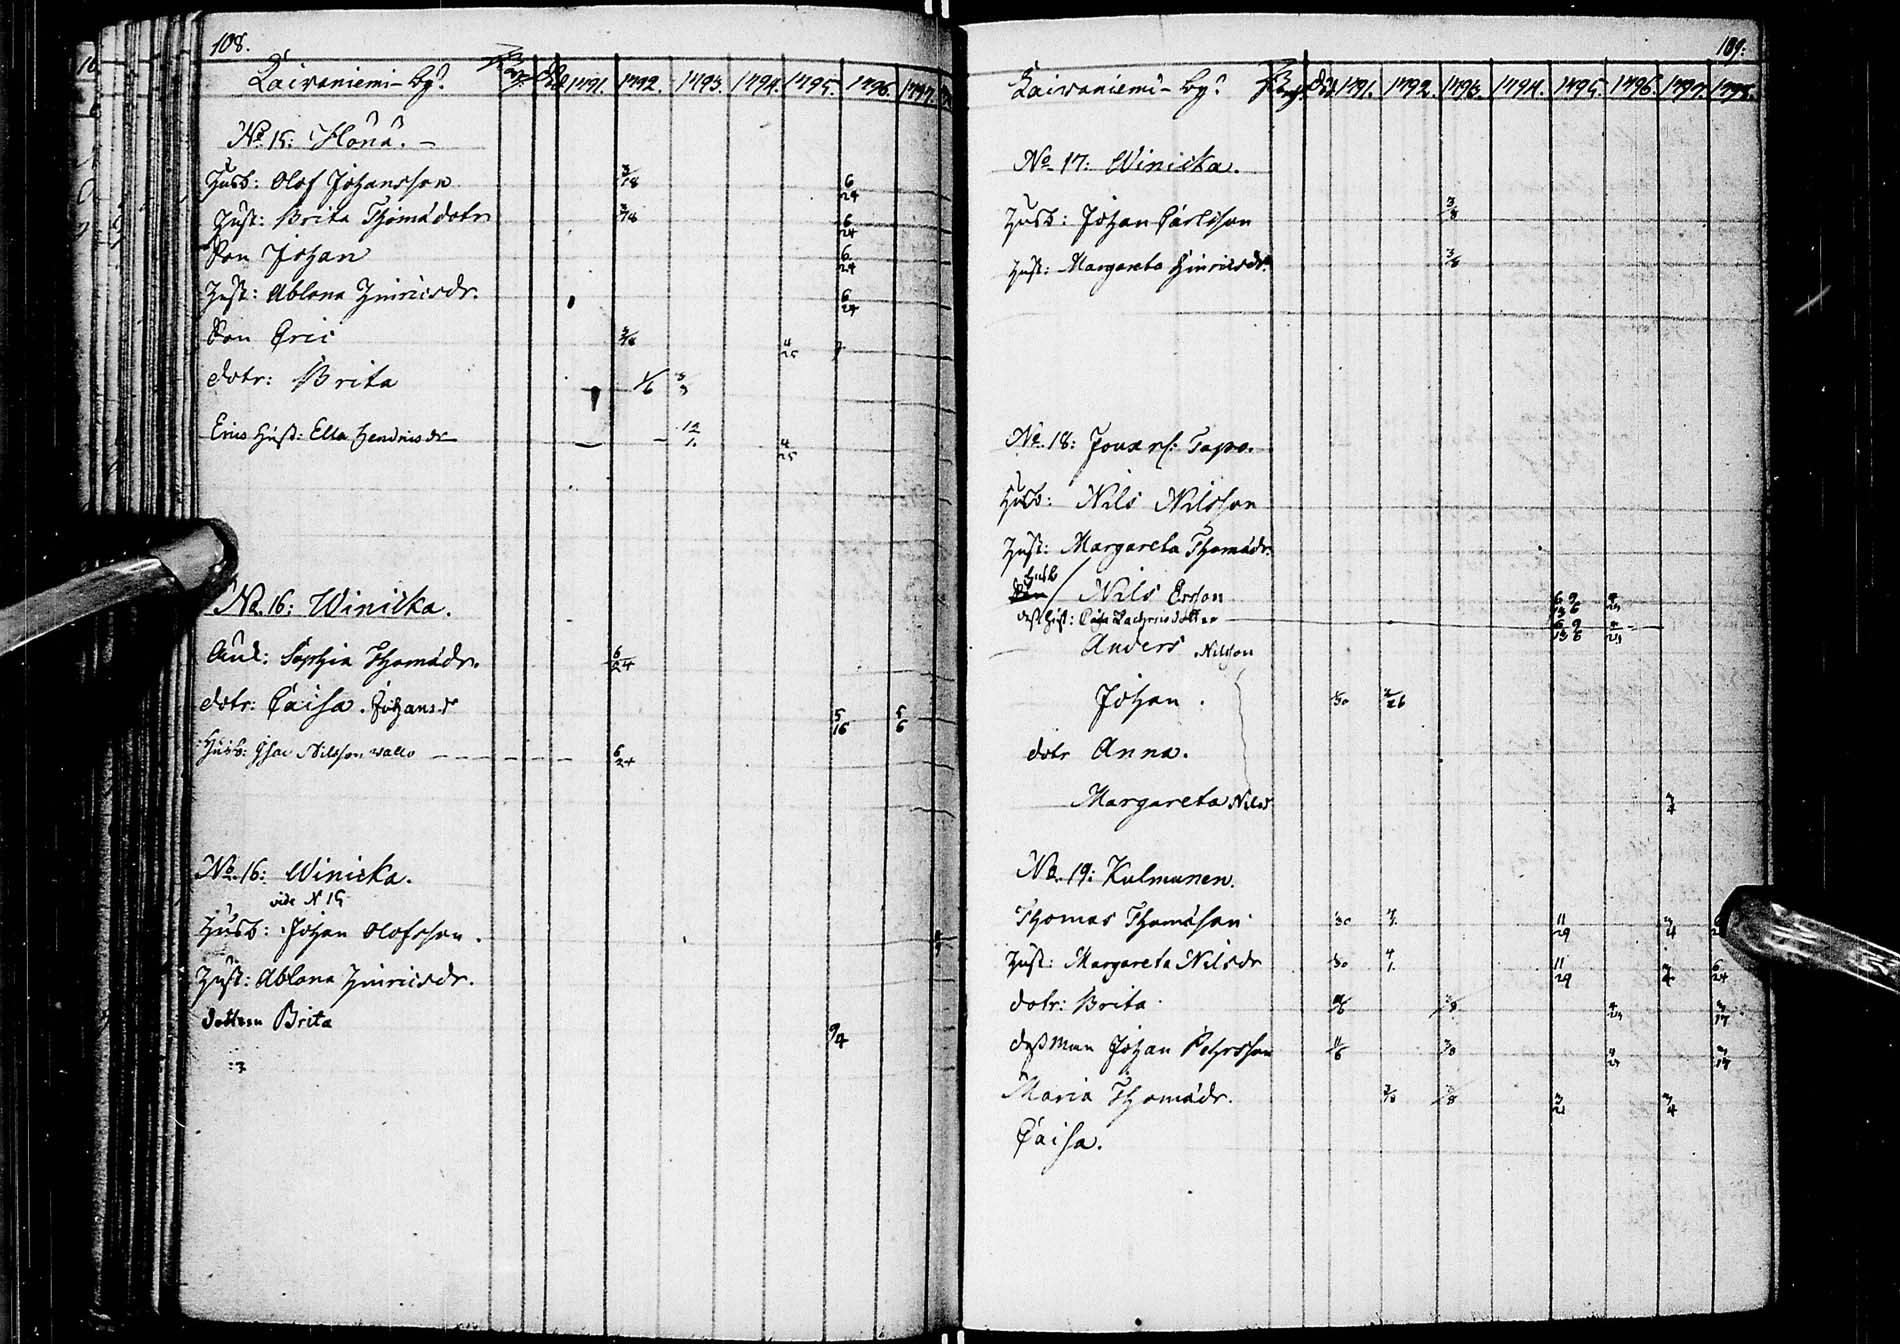 108.
Kaivaniemi - by? 1791. 1792. 1793. 1794. 1795. 1796. 1797.
No 15: Hönä. -
Husb: Olof Johansson 3/18 6/24
Hust: Brita Thomädotr 3/18 6/24
Son Johan 6/24
Hust: Ablona Hinricsdr. 6/24
Son Eric 3/18 4/25
dotr: Brita 1/6 3/3
Erics Hust: Ella Hendricsdr 12/1. 4/25
No. 16: Winicka.
Änk: Sophia Thomädr. 6/24
dotr: Caisa. Johansdr 5/16 5/6
Husb: Isac Nilsson Wallo 6/24
No. 16: Winicka.
vide N 15
Husb: Johan Olofsson.
Hust: Ablona Hinricsdr.
dottren Brita 9/4
109:
Kaivaniemi - by? 1791. 1792. 1793. 1794. 1795. 1796. 1797. 1798.
No 17: Winicka.
Husb: Johan Carlsson 3/8
Hust: Margareta Hinricsdr. 3/8
No. 18: Joux Tapo.
Husb: Nils Nilsson
Hust: Margareta Thomädr.
Husb
Son / Nils Ersson 6/13 9/6 4/25
dess Hust: Caisa Zachrisdotter 6/13 9/6 4/25
Anders Nilsson
Johan. 1/30 2/26
dotr Anna.
Margareta Nilsd 7/4
No. 19: Kulmunen.
Thomas Thomäson 1/30 4/1. 11/29 7/4
Hust: Margareta Nilsdr 1/30 4/1. 11/29 7/4 6/24
dotr: Brita 11/6 3/8 4/25 3/17
dess man Johan Pehrsson 11/6 3/8 4/25 3/17
Maria Thomädr. 3/18 3/8 3/21 7/4
Caisa.